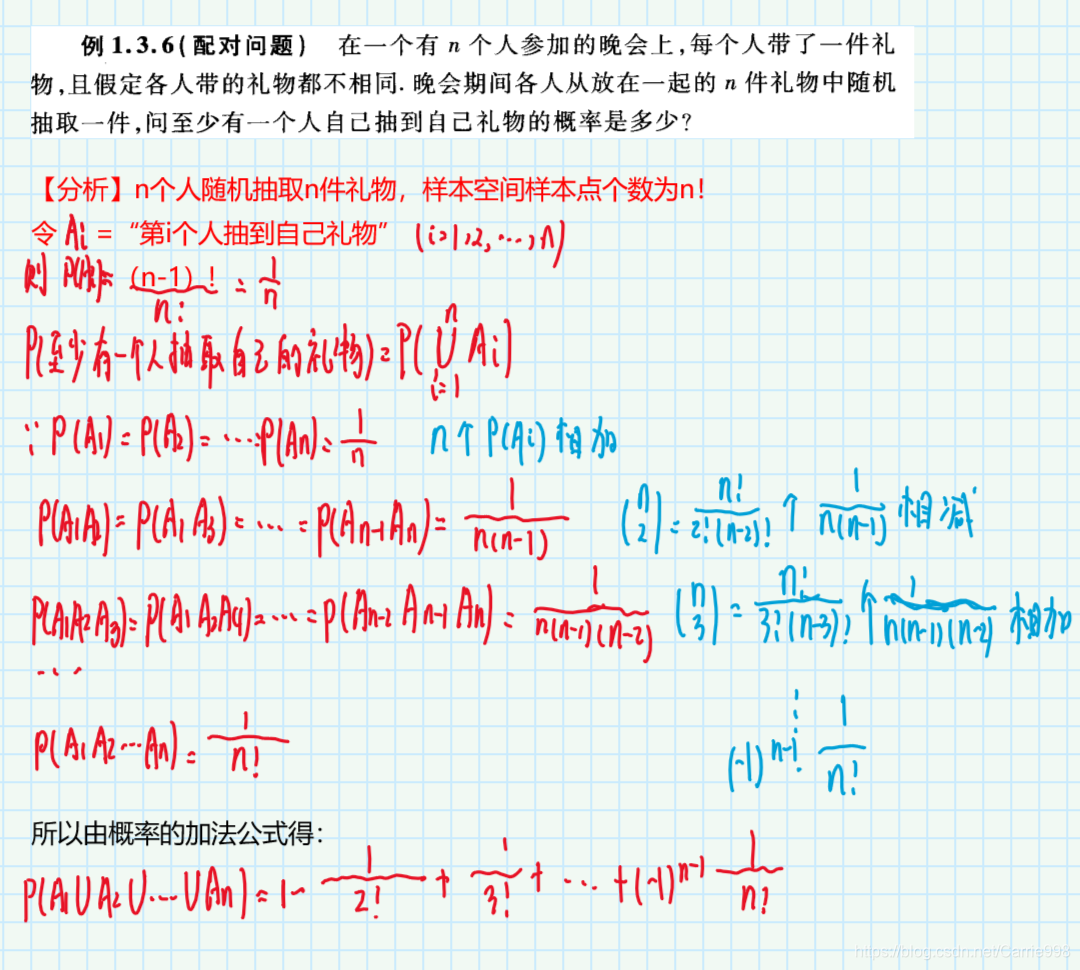 例 1.3.6(配对问题) 在一个有 n 个人参加的晚会上,每个人带了一件礼
物,且假定各人带的礼物都不相同. 晚会期间各人从放在一起的 n 件礼物中随机
抽取一件,问至少有一个人自己抽到自己礼物的概率是多少?
【分析】n个人随机抽取n件礼物，样本空间样本点个数为n！
令 Ai = “第i个人抽到自己礼物” (i=1,2,…,n)
则 P(Ai)= (n-1)！/n! = 1/n
P(至少有一个人抽取自己的礼物)=P(⋃_{i=1}^{n} Ai)
∵ P(A1)=P(A2)=…=P(An)=1/n n个P(Ai)相加
P(A1A2)=P(A1A3)=…=P(An-1An)=1/n(n-1) (n 2)=n!/2!(n-2)! 个 1/n(n-1) 相减
P(A1A2A3)=P(A1A2A4)=…=P(An-2An-1An)=1/n(n-1)(n-2) (n 3)=n!/3!(n-3)! 个 1/n(n-1)(n-2) 相加
...
⋮
P(A1A2…An)=1/n! (-1)^{n-1} 1/n!
所以由概率的加法公式得：
P(A1∪A2∪…∪An)=1-1/2!+1/3!+…+(-1)^{n-1} 1/n!
https://blog.csdn.net/Carrie998